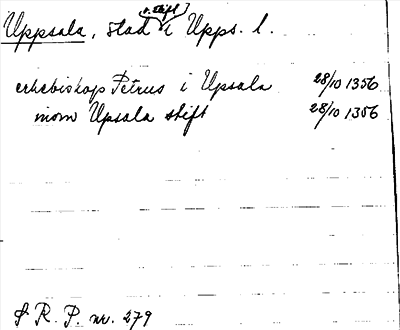 Uppsala, stad (o. stift) i Upps. l.
erkebiskop Petrus i Upsala 28/10 1356
inom Upsala stift 28/10 1356
S. R. P. nr. 279